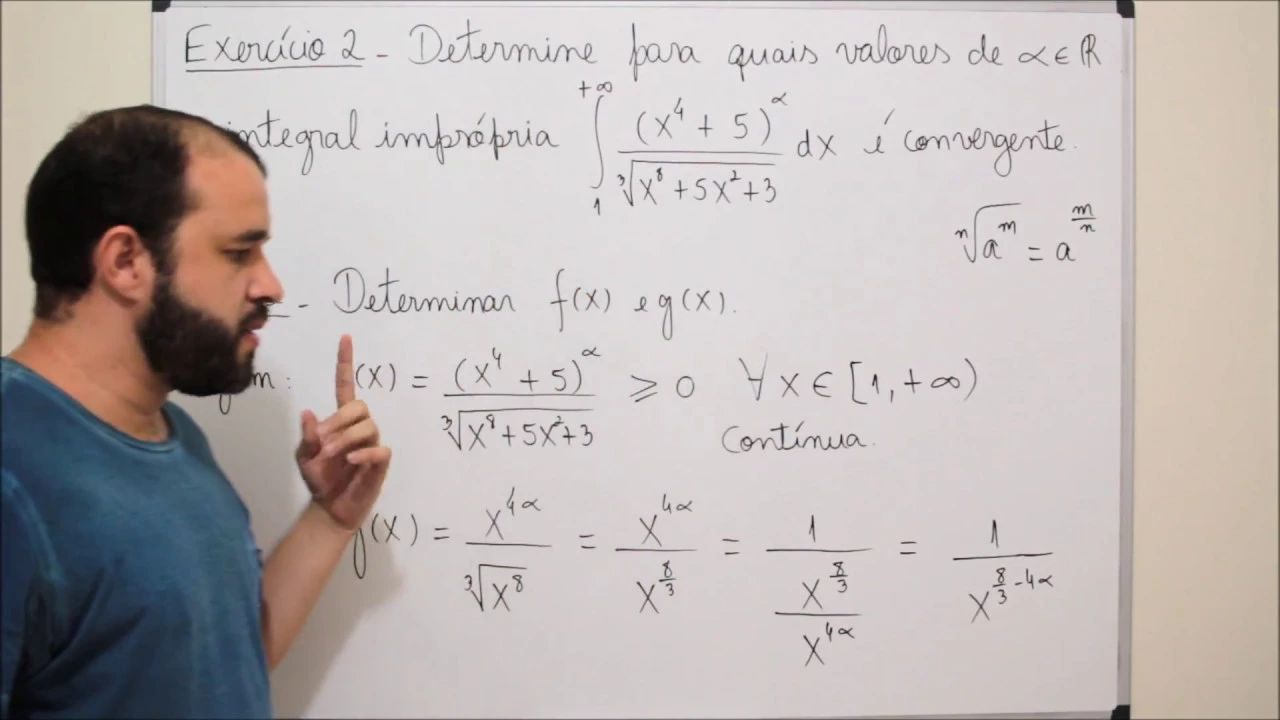 Exercício 2 - Determine para quais valores de α ∈ ℝ
integral imprópria ∫₁^{+∞} (x⁴ + 5)^α / ∛(x⁸ + 5x² + 3) dx é convergente.
ⁿ√(a^m) = a^{m/n}
- Determinar f(x) e g(x).
(x) = (x⁴ + 5)^α / ∛(x⁸ + 5x² + 3) ⩾ 0 ∀ x ∈ [1, +∞)
Contínua.
g(x) = x^{4α} / ∛(x⁸) = x^{4α} / x^{8/3} = 1 / (x^{8/3} / x^{4α}) = 1 / x^{8/3 - 4α}